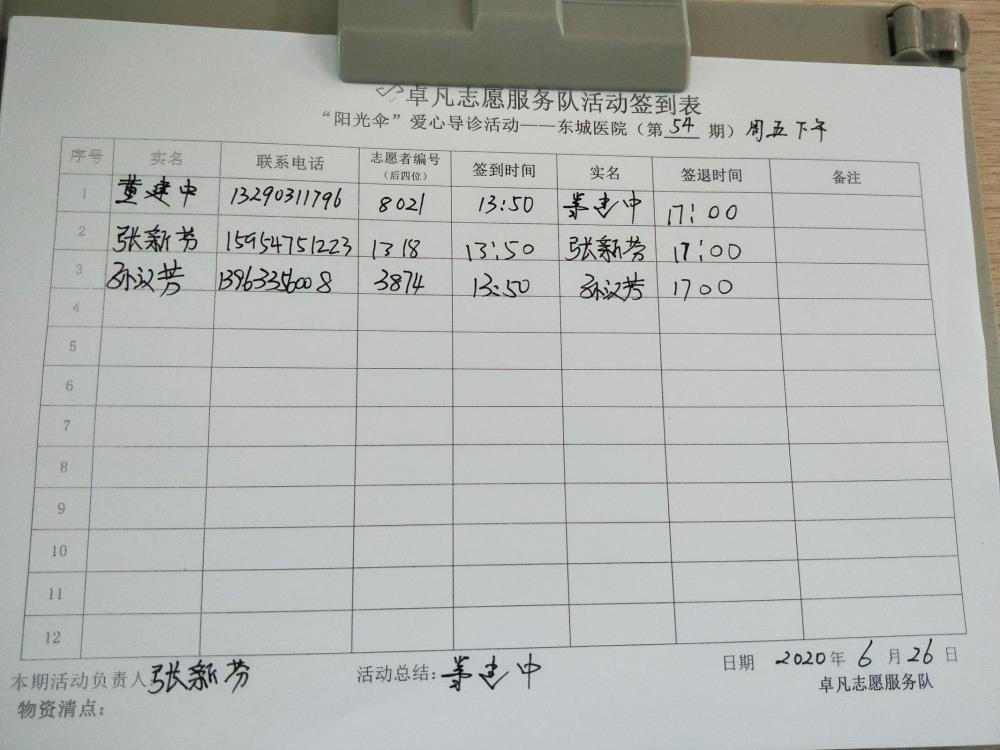 卓凡志愿服务队活动签到表
“阳光伞”爱心导诊活动——东城医院（第 54 期）周五下午
序号 实名 联系电话 志愿者编号（后四位） 签到时间 实名 签退时间 备注
1 董建中 13290311796 8021 13:50 董建中 17:00
2 张新芳 15954751223 1318 13:50 张新芳 17:00
3 孙汉芳 13963356008 3874 13:50 孙汉芳 1700
4
5
6
7
8
9
10
11
12
本期活动负责人 张新芳 活动总结：董建中 日期 2020年 6月 26日
物资清点： 卓凡志愿服务队